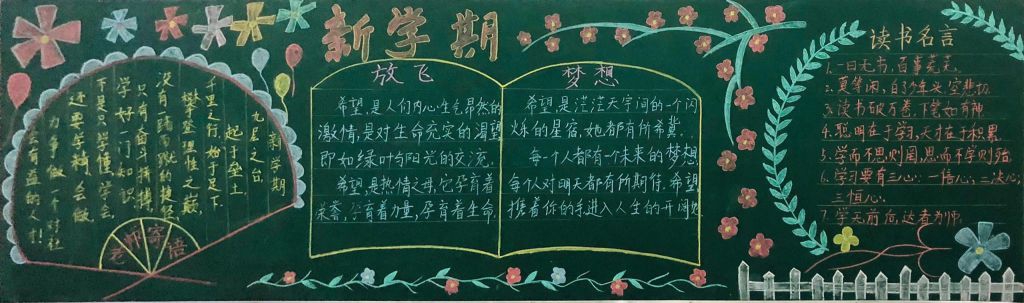 新学期
新学期
九层之台,
起于垒土
千里之行,始于足下
攀登理性之巅,
没有踏the捷径
只有奋斗拼搏
学好一门知识,
不是只学懂,学会,
还要学精,会做
为争做一个对社
会有益的人才!
老师寄语
放飞
希望是人们内心生气昂然的
激情,是对生命充实的渴望
即如绿叶与阳光的交流.
希望是热情之母,它孕育着
荣誉,孕育着力量,孕育着生命.
梦想
希望是茫茫天宇间的一个闪
烁的星宿.她都有所希冀.
每一个人都有一个未来的梦想
每个人对明天都有所期待.希望
携着你的手进入人生的开阔处
读书名言
1.一日无书,百事荒芜.
2.莫等闲,白了少年头,空悲切.
3.读书破万卷,下笔如有神.
4.聪明在于学习,天才在于积累.
5.学而不思则罔,思而不学则殆.
6.学习要有三心:一信心,二决心,
三恒心.
7.学无前后,达者为师.